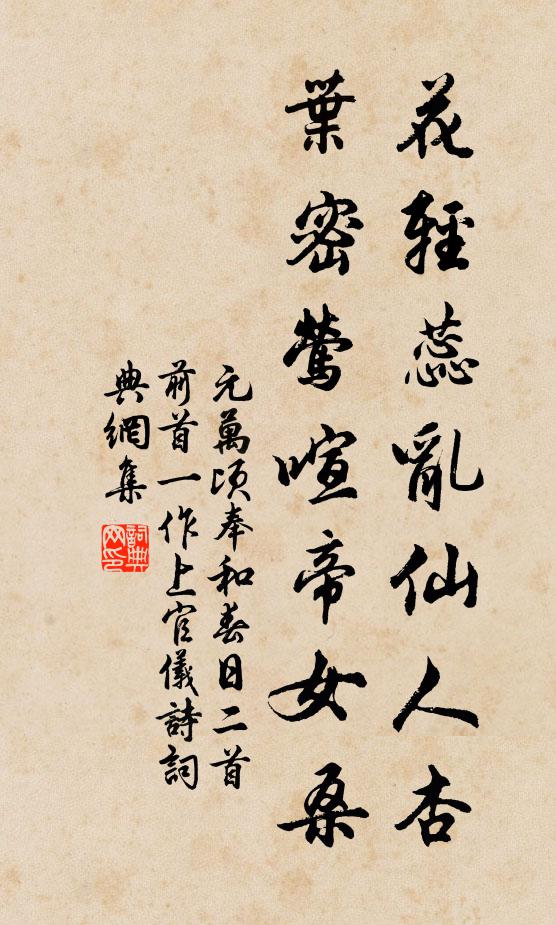 花輕蕊亂仙人杏
葉密鶯喧帝女桑
元萬頃奉和春日二首
前首一作上官儀詩詞
典網集
詞典
网印